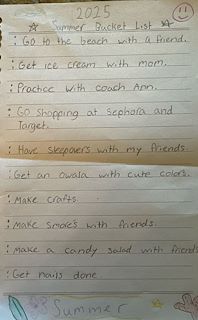 2025
Summer Bucket List
: Go to the beach with a friend.
: Get ice cream with mom.
: Practice with coach Ann.
: Go shopping at Sephora and
Target.
: Have sleepovers with my friends.
: Get an owala with cute colors.
: Make crafts.
: Make smores with friends.
: Make a candy salad with friends
: Get nails done.
Summer